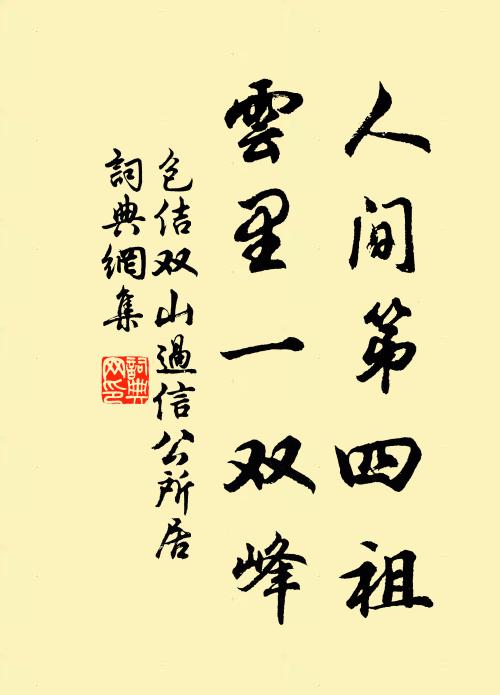 人间第四祖
雲里一双峰
包佶双山過信公所居
詞典網集
詞典網印